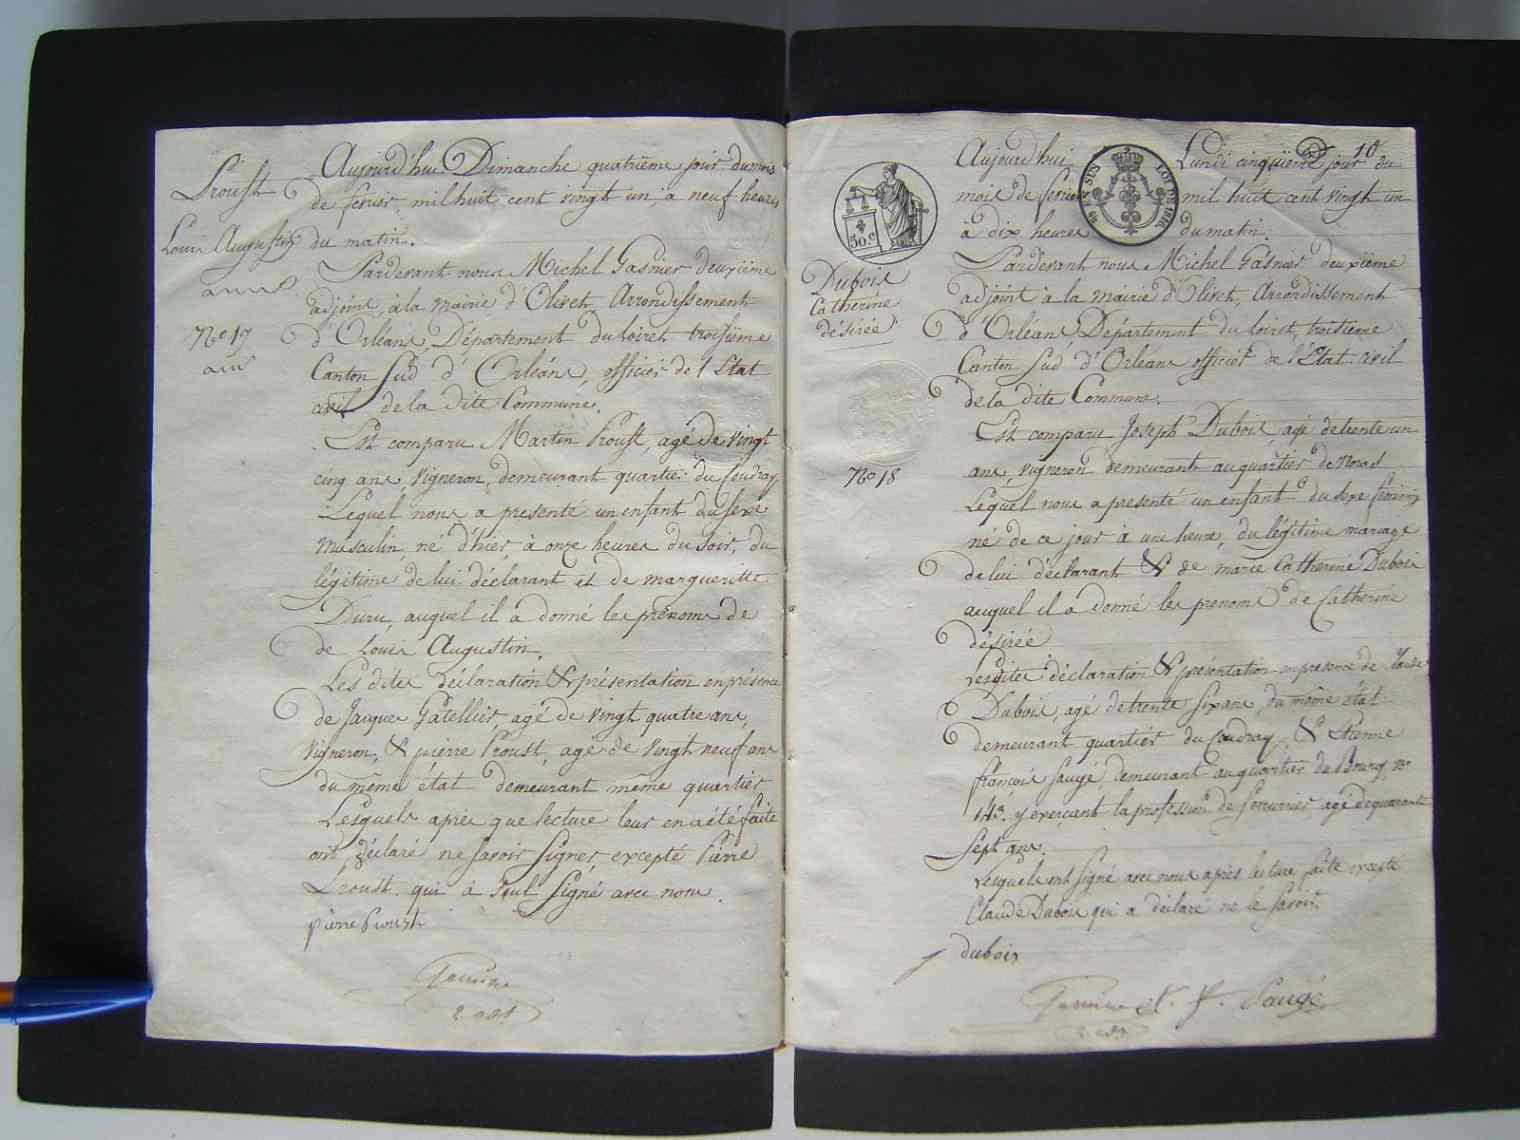 Proust
Louis Augustin
No 17
Aujourd'hui Dimanche quatrième jour du mois
de fevrier, mil huit cent vingt un, à neuf heures
du matin.
Pardevant nous Michel Gasnier deuxième
adjoint, à la Mairie d'Olivet, Arrondissement
d'Orléans, Département du loiret troisième
Canton Sud d'Orléans, officier de l'Etat
civil de la dite Commune.
Est comparu Martin Proust, agé de vingt
cinq ans, vigneron, demeurant quartier du Coudray
Lequel nous a presenté un enfant du sexe
Masculin, né d'hier, à onze heures du soir, du
légitime de lui déclarant et de margueritte
Duru, auquel il a donné les prénoms de
de Louis Augustin.
Les dites déclaration & présentation en présence
de Jacques Gatellier, agé de vingt quatre ans,
vigneron, & pierre Proust, agé de vingt neuf ans
du même état demeurant même quartier
Lesquels après que lecture leur en a été faite
ont déclaré ne savoir signer, excepté Pierre
Proust qui à seul signé avec nous.
pierre Proust
Gasnier
2. adt
10
30 c.
Dubois
Catherine
désirée
No 18
Aujourd'hui Lundi cinquième jour du
mois de fevrier mil huit cent vingt un
à dix heures du matin.
Pardevant nous Michel Gasnier deuxième
adjoint à la mairie d'Olivet, Arrondissement
d'Orléans Département du loiret, troisième
Canton Sud d'Orléans officier de l'Etat civil
de la dite Commune.
Est comparu Joseph Dubois, agé de trente un
ans, vigneron demeurant au quartier de
Lequel nous a presenté un enfant du sexe féminin
né de ce jour à une heure, du légitime mariage
de lui déclarant & de marie Catherine Dubois
auquel il a donné les prenoms de Catherine
désirée
Lesdites déclaration & présentation en presence de Claude
Dubois, agé de trente six ans, du même état
demeurant quartier du Coudray, & Etienne
françois Saugé, demeurant au quartier du Bourg, no
143. y exerçant la profession de Serrurier, agé de quarante
Sept ans.
Lesquels ont signé avec nous après lecture faite excepté
Claude Dubois qui a déclaré ne le savoir.
dubois
Gasnier E. f. Saugé
2. adt